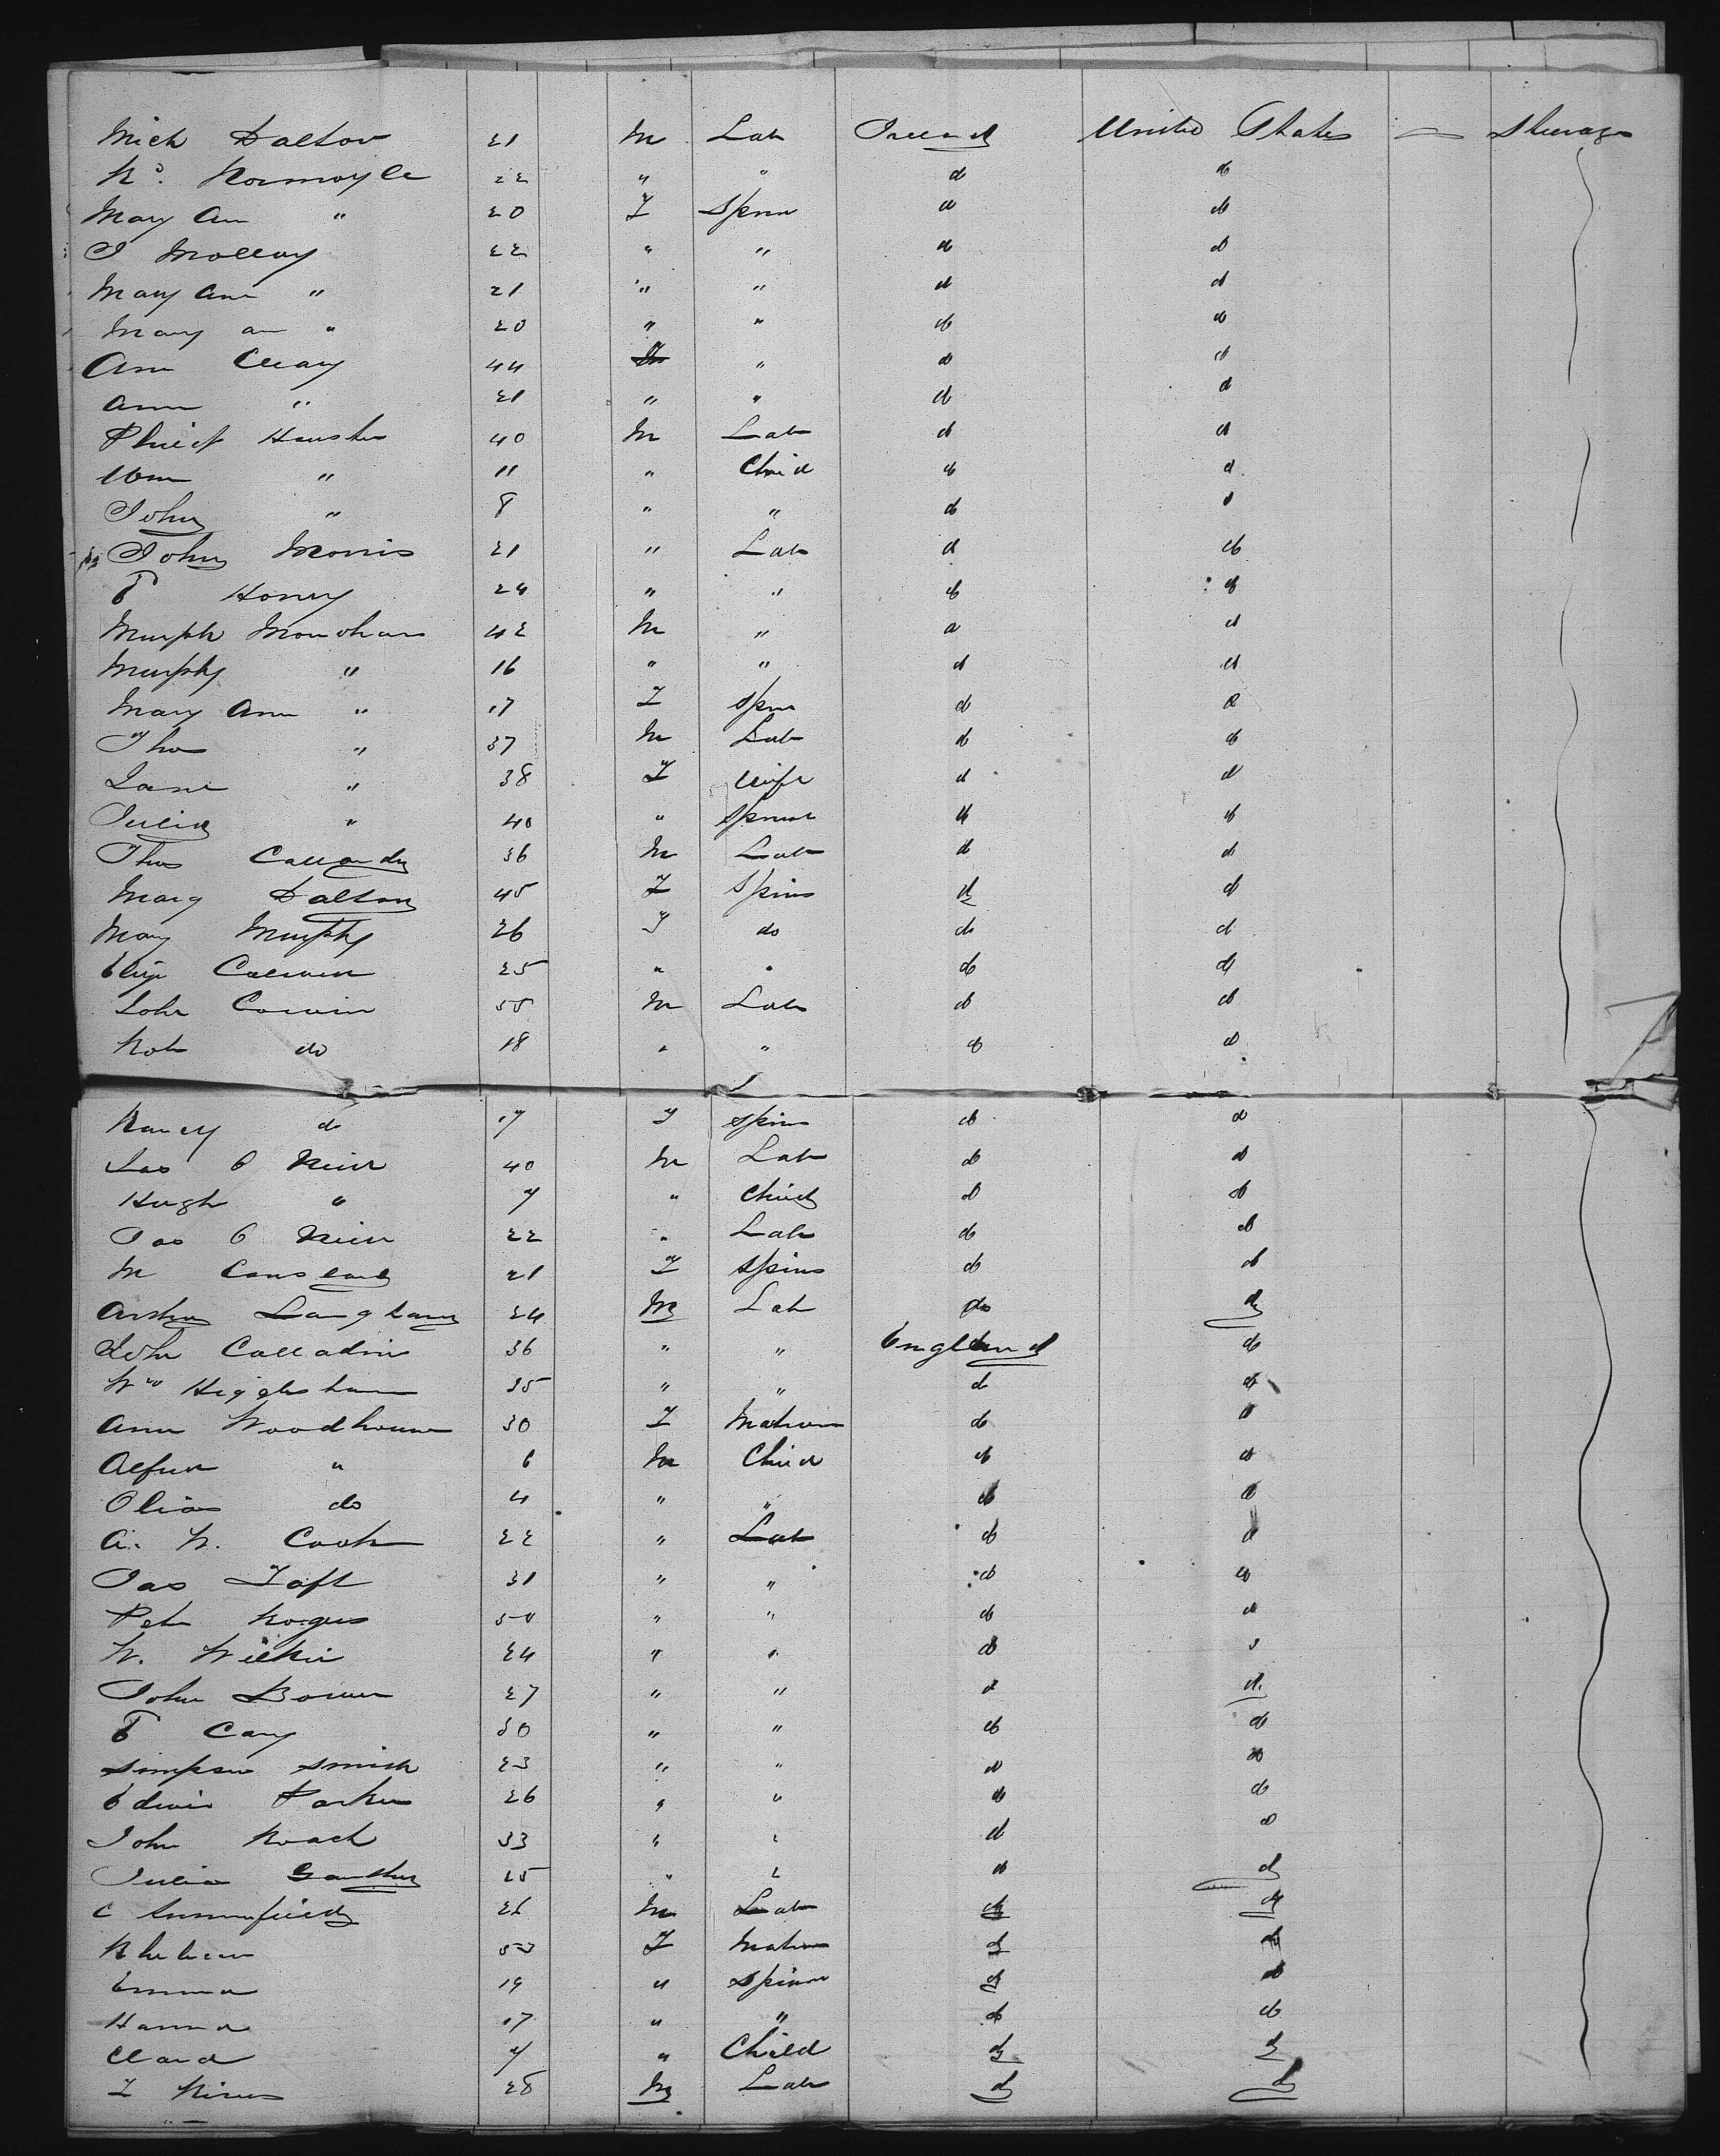 Mich Dalton 21 M Lab Ireland United States — Steerage
Rd. Normoyle 22 " " d do
Mary Ann " 20 F Spins d do
J Molloy 22 " " do d
Mary Ann " 21 " " d d
Mary an " 20 " " do do
Ann Cleary 44 F " d d
Ann " 21 " " do d
Philip 40 M Lab d d
Wm " 11 " Child do d
John " 8 " " do d
John Morris 21 " Lab d do
E Honry 24 " " do do
Murph Monohan 42 M " d d
Murphy " 16 " " d d
Mary Ann " 17 F Spins d d
Thos " 37 M Lab do do
Jane " 38 F Wife d d
Julia " 40 " Spinst d do
Thos 36 M Lab d d
Mary Dalton 45 F Spins d do
Mary Murphy 26 F do do d
Eliza 25 " " do d
John 55 M Lab d d
Rob do 18 " " do d
Nancy do 17 F Spins do d
Jas O Neill 40 M Lab do d
Hugh " 7 " Child d do
Jas O Neill 22 " Lab do d
M 21 F Spins do d
Arthur Langham 24 M Lab do d
John Calladine 36 " " England do
Wm 35 " " d do
Ann Woodhouse 30 F Matron do d
Alfred " 6 M Child do do
do 4 " " do d
A. W. Cook 22 " Lab do d
Jas Taft 31 " " do do
Peter Rogers 50 " " do d
W. Wilkin 24 " " do
John Bower 27 " " d d
E Cary 30 " " do do
Simpson Smith 23 " " d do
Edwin Parker 26 " " do do
John Roach 33 " " d do
Julia 25 " d d
C Summerfield M Lab d d
53 F Matron d d
Emma 19 " Spins d do
Hanna 17 " " do do
Clara 7 " Child d d
28 M Lab d d